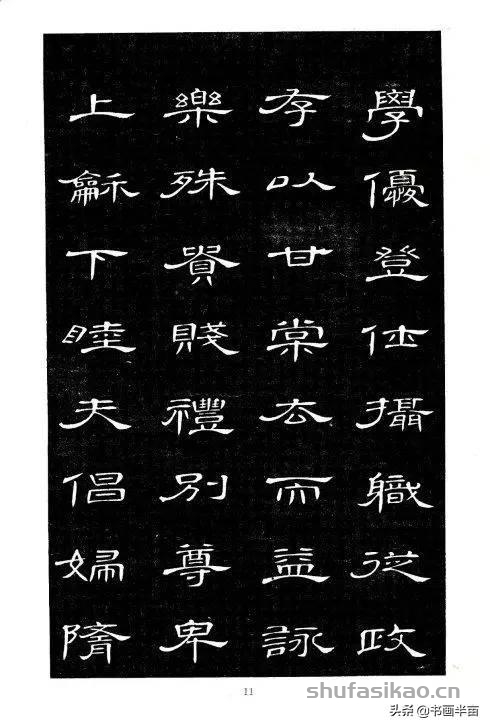 學優登仕攝職從政
存以甘棠去而益詠
樂殊貴賤禮別尊卑
上龢下睦夫倡婦隨
11
shufasikao.cn
头条 @书画半亩